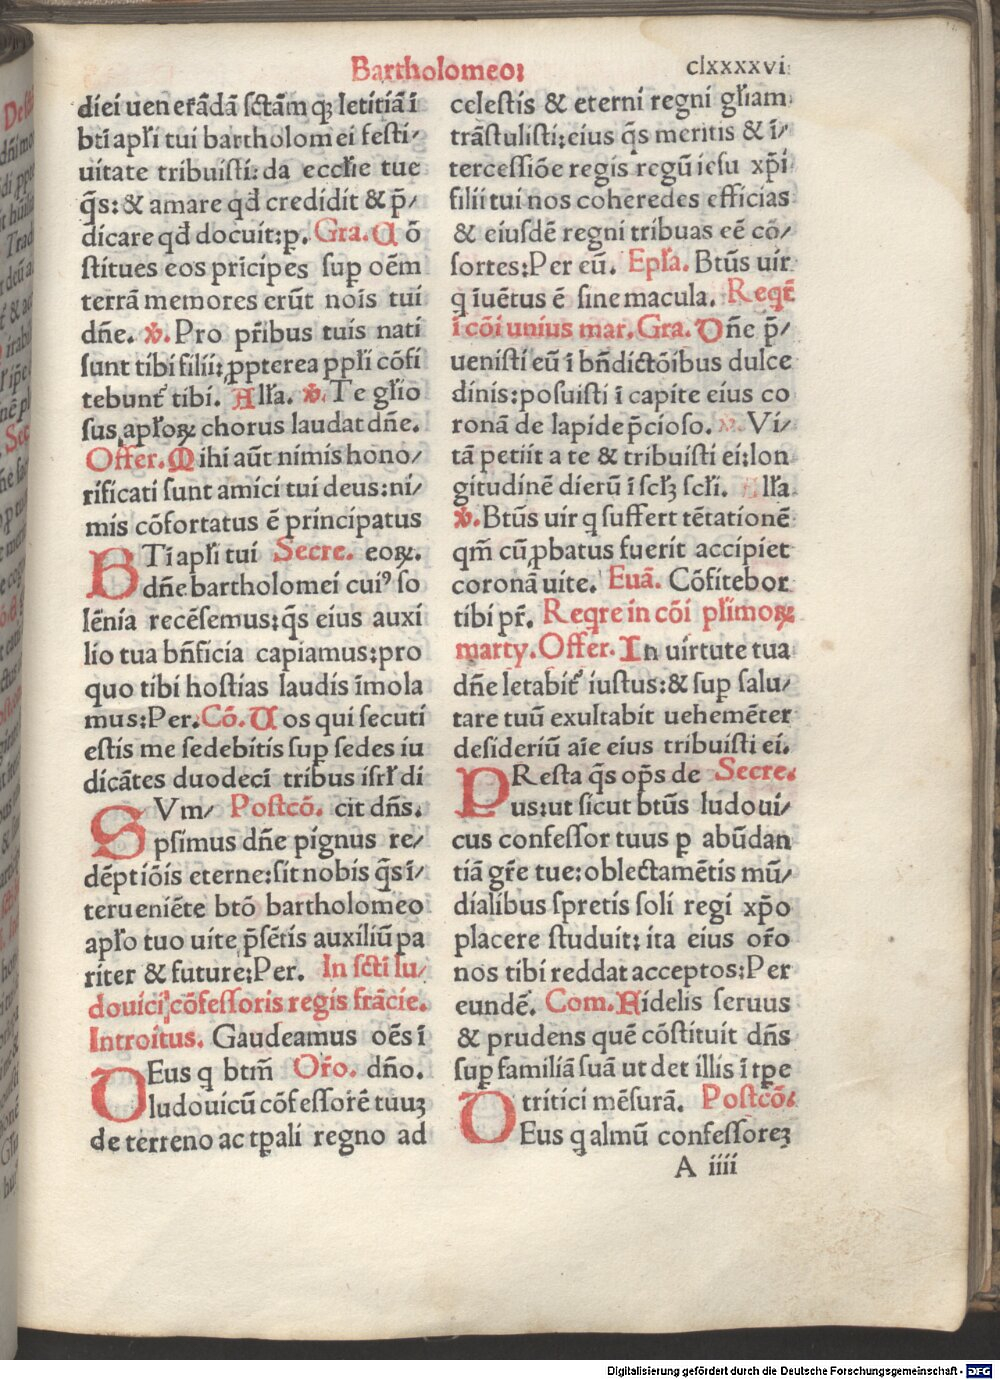 Bartholomeo:
clxxxxvi
diei uenerādā sctāmq; letitiā ī
btī apli tui bartholomei festi/
uitate tribuisti: da ecclie tue
q̄s: & amare qd credidit & p̄/
dicare qd docuit: p. Gra. C ō
stitues eos pricipes sup oēm
terrā memores erūt nois tui
dñe. ℣. Pro pribus tuis nati
sunt tibi filii: ꝓpterea ppli cōfi
tebunt tibi. Alla. ℣. Te glio
sus aploꝝ chorus laudat dñe.
Offer. M ihi aūt nimis hono/
rificati sunt amici tui deus: ni/
mis cōfortatus ē principatus
B Tī apli tui Secre. eoꝝ.
dñe bartholomei cuiꝰ so
lēnia recēsemus: q̄s eius auxi
lio tua bñficia capiamus: pro
quo tibi hostias laudis īmola
mus: Per. Cō. U os qui secuti
estis me sedebitis sup sedes iu
dicātes duodecī tribus isrl di
S Vm/ Postcō. cit dñs.
psimus dñe pignus re/
dēptiōis eterne: sit nobis q̄s ī/
terueniēte btō bartholomeo
aplo tuo uite p̄sētis auxiliū pa
riter & future: Per. In scti lu/
douici cōfessoris regis frācie.
Introitus. Gaudeamus oēs ī
D Eus q btm̄ Oro. dño.
ludouicū cōfessorē tuuꝫ
de terreno ac tꝑali regno ad
celestis & eterni regni gliam
trāstulisti: eius q̄s meritis & ī/
tercessiōe regis regū iesu xp̄i
filii tui nos coheredes efficias
& eiusdē regni tribuas eē cō/
sortes: Per eū. Epla. Btūs uir
q īuētus ē sine macula. Reqr
ī cōi unius mar. Gra. D ñe p̄/
uenisti eū ī bñdictōibus dulce
dinis: posuisti ī capite eius co
ronā de lapide p̄cioso. ℣. Vi/
tā petiit a te & tribuisti ei: lon
gitudinē dierū ī sclꝫ scli. Alla
℣. Btūs uir q suffert tētationē
qm̄ cū ꝓbatus fuerit accipiet
coronā uite. Euā. Cōfitebor
tibi pr̄. Reqre in cōi plimoꝝ
marty. Offer. In uirtute tua
dñe letabit iustus: & sup salu/
tare tuū exultabit uehemēter
desideriū aīe eius tribuisti ei.
P Resta q̄s op̄s de Secre.
us: ut sicut btūs ludoui/
cus confessor tuus ꝑ abūdan
tiā gr̄e tue: oblectamētis mū/
dialibus spretis soli regi xp̄o
placere studuit: ita eius oro
nos tibi reddat acceptos: Per
eundē. Com. Fidelis seruus
& prudens quē cōstituit dñs
sup familiā suā ut det illis ī tꝑe
tritici mēsurā. Postcō.
D Eus q almū confessoreꝫ
A iiii
Digitalisierung gefördert durch die Deutsche Forschungsgemeinschaft - DFG